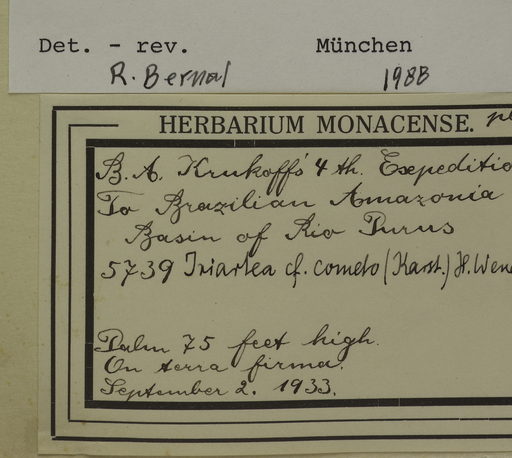 Det. - rev. München
R. Bernal 1988
HERBARIUM MONACENSE.
B. A. Krukoff's 4 th. Exepeditio
To Brazilian Amazonia
Basin of Rio Purus
5739 Iriartea cf. cometo (Karst.) H. Wend
Palm 75 feet high.
On terra firma.
September 2. 1933.